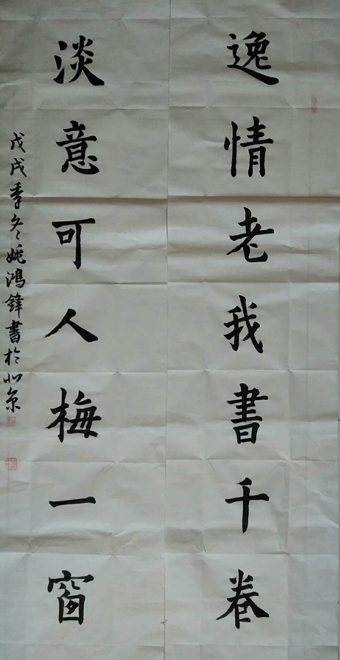 逸情老我書千卷
淡意可人梅一窗
戊戌季冬姚鴻鋒書於北京